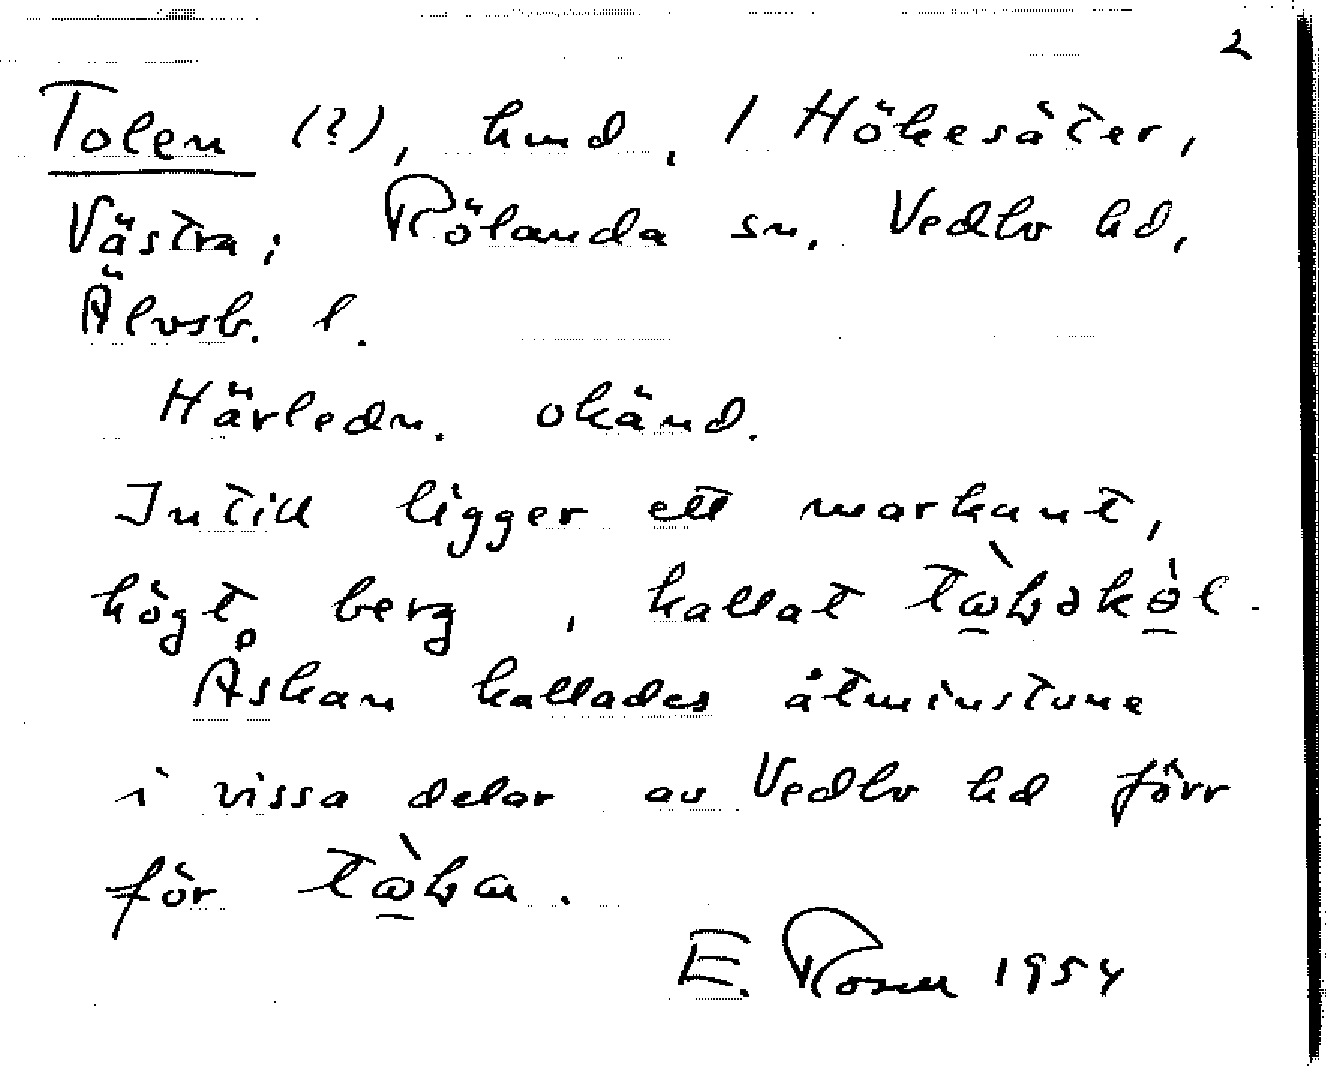 2
Tolen (?), hmd, 1 Hökesäter,
Västra; Rölanda sn, Vedbo hd,
Älvsb. l.
Härledn. okänd.
Intill ligger ett markant,
högt berg, kallat
Åskan kallades åtminstone
i vissa delar av Vedbo hd förr
för
E. Rosen 1954